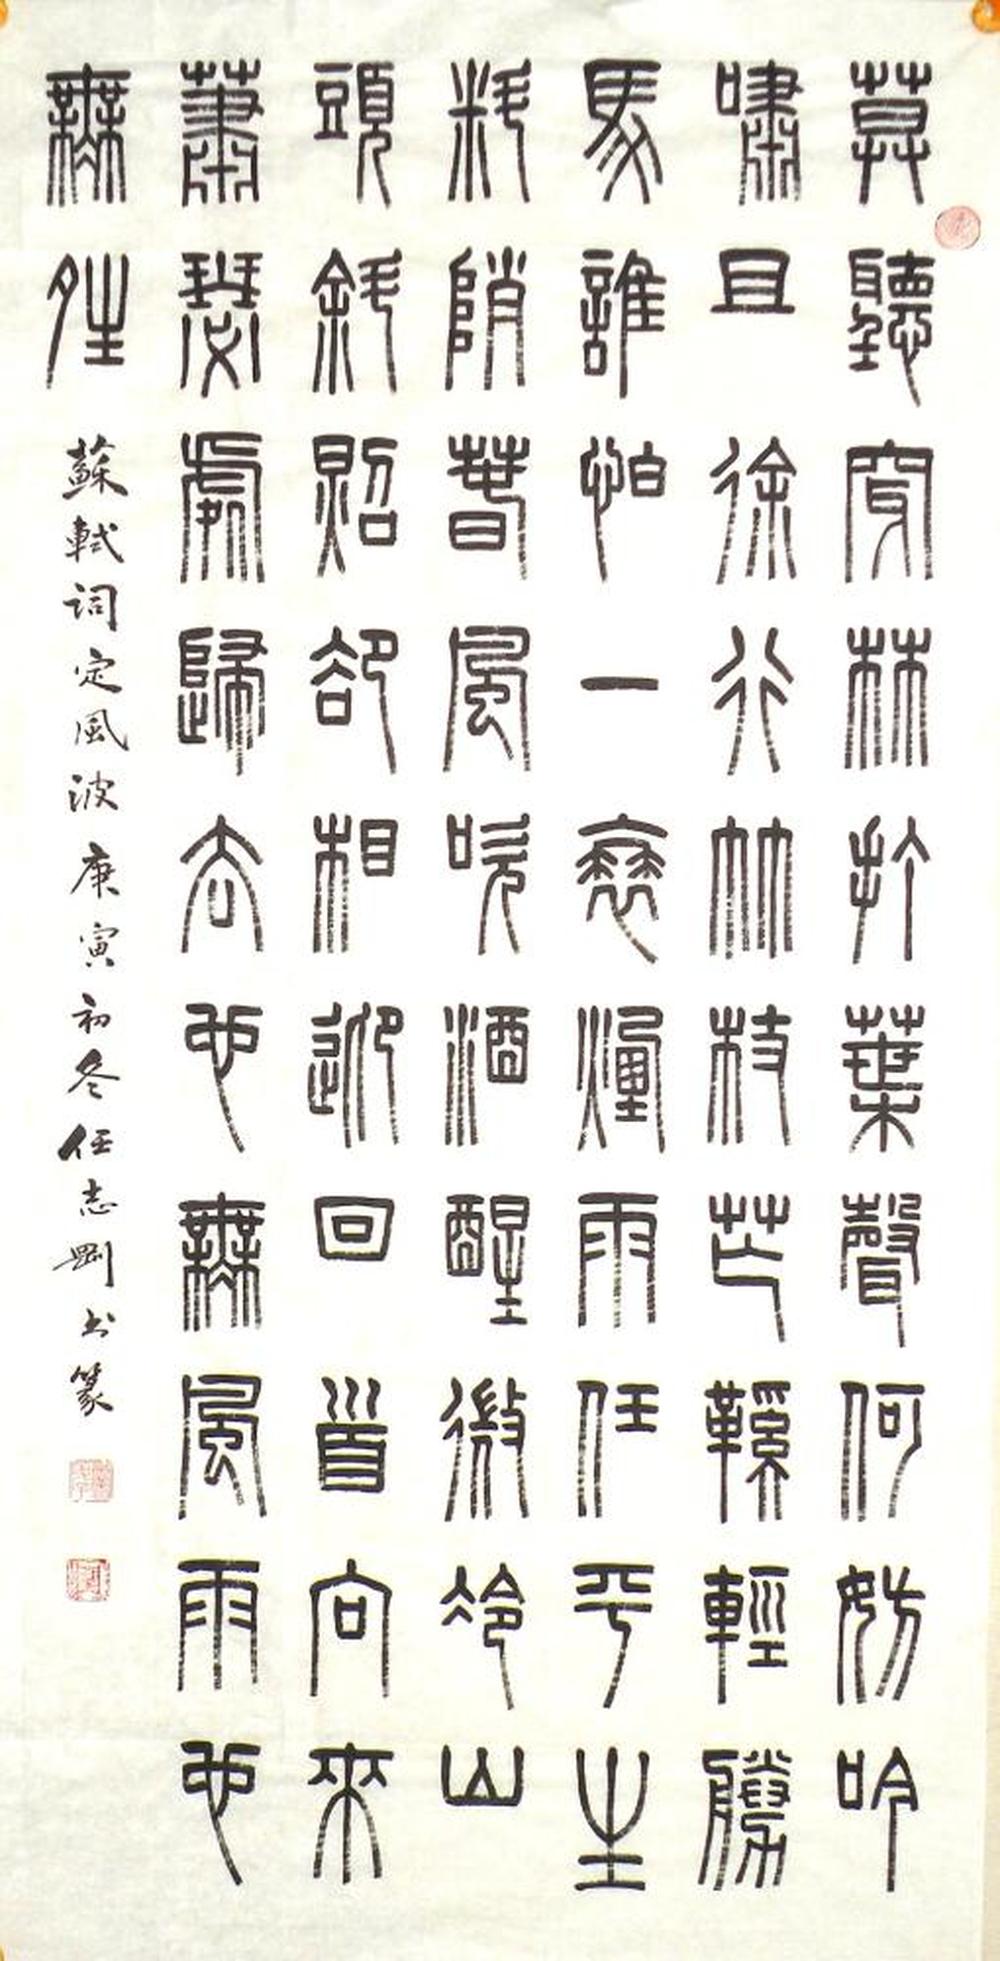 莫聽穿林打葉聲何妨吟
嘯且徐行竹杖芒鞵輕勝
馬誰怕一蓑煙雨任平生
料峭春風吹酒醒微冷山
頭斜照卻相迎回首向來
蕭瑟處歸去也無風雨也
無夝
蘇軾詞定風波庚寅初冬任志剛書篆